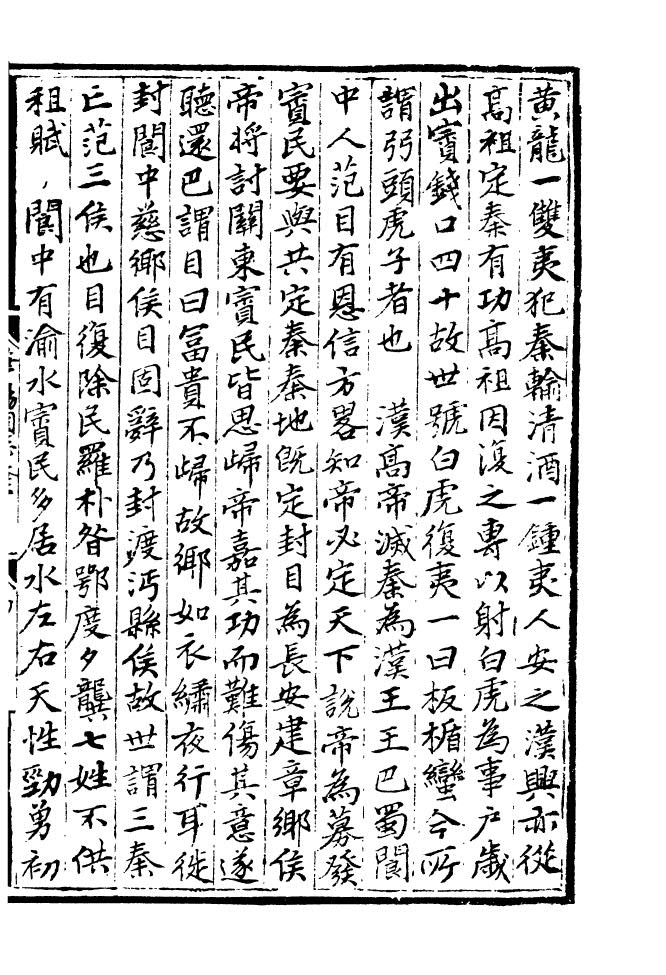 黄龍一雙夷犯秦輸清酒一鍾夷人安之漢興亦從
高祖定秦有功高祖因復之專以射白虎為事户歲
出賨錢口四十故世號白虎復夷一曰板楯蠻今所
謂弜頭虎子者也　漢高帝滅秦為漢王王巴蜀閬
中人范目有恩信方畧知帝必定天下說帝為募發
賨民要與共定秦秦地旣定封目為長安建章鄉侯
帝将討關東賨民皆思歸帝嘉其功而難傷其意遂
聽還巴謂目曰冨貴不歸故鄉如衣繡夜行耳徙
封閬中慈鄉侯目固辭乃封渡沔縣侯故世謂三秦
亡范三侯也目復除民羅朴昝鄂度夕龔七姓不供
租賦閬中有渝水賨民多居水左右天性勁勇初